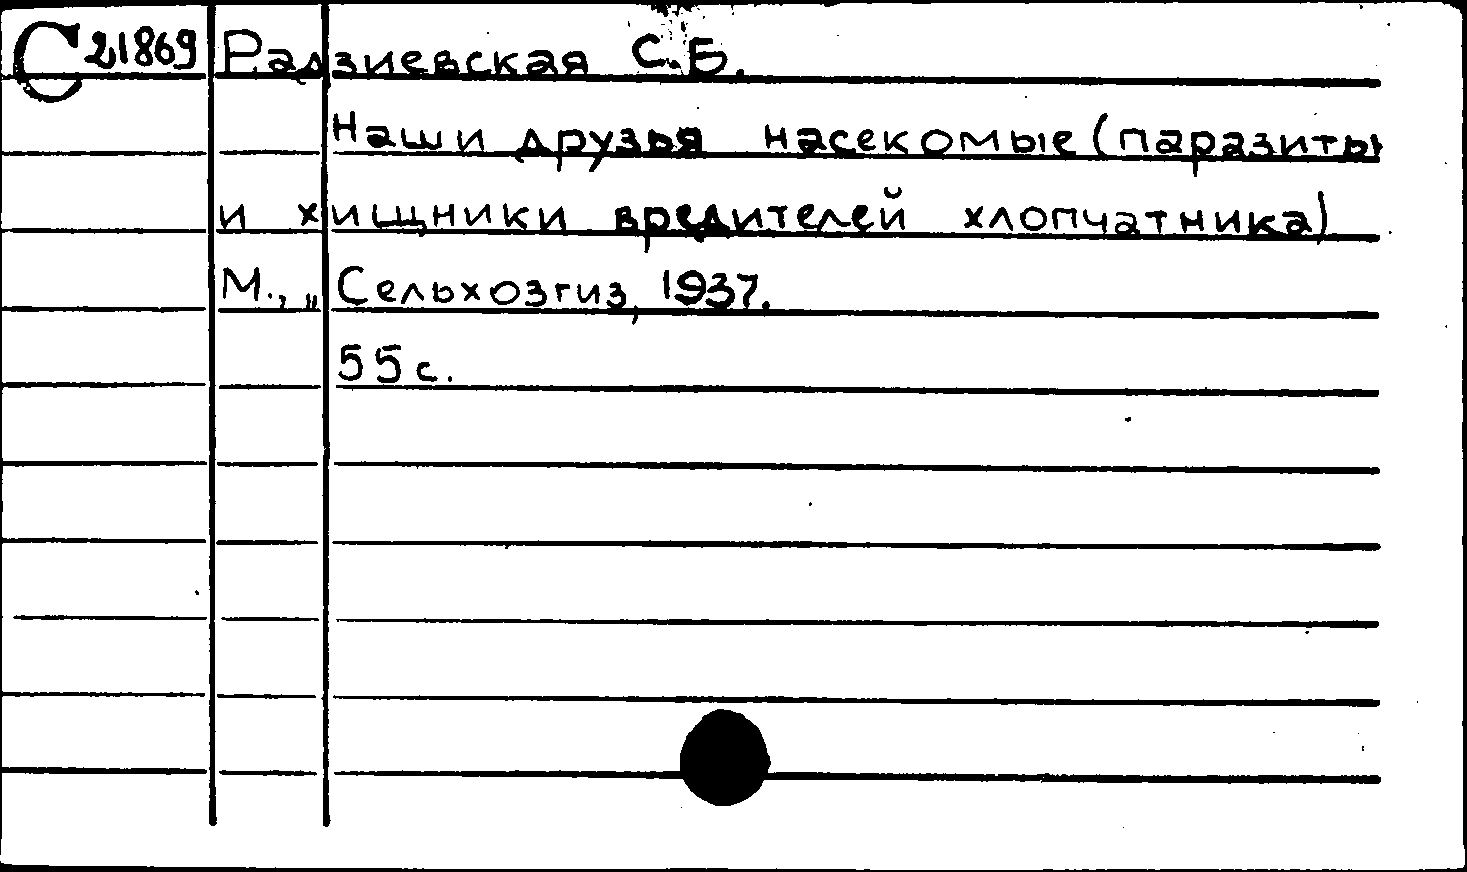 С 21869 Радзиевская С.Б.
Наши друзья насекомые (паразиты
и хищники вредителей хлопчатника)
М., „Сельхозгиз, 1937.
55 с.